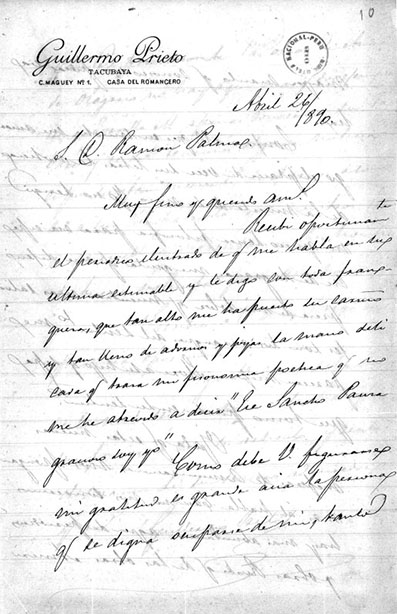 10
Guillermo Prieto
TACUBAYA
C. MAGUEY Nº 1. CASA DEL ROMANCERO
BIBLIOTECA NACIONAL - PERU
Abril 26/
890.
S. D. Ramón Palma
Muy fino y querido am.º
Recibí oportunam.te
el periódico ilustrado de q me habla en su
última estimable y le digo con toda fran-
queza, que tan alto me ha puesto su cariño
y tan lleno de adornos y joyas la mano deli
cada q traza mi fisonomía poética q no
me he atrevido a decir "Ese Sancho Panza
gracioso soy yo" Como debe V. figurarse
mi gratitud es grande acia la persona
q se digna ocuparse de mi, tanto